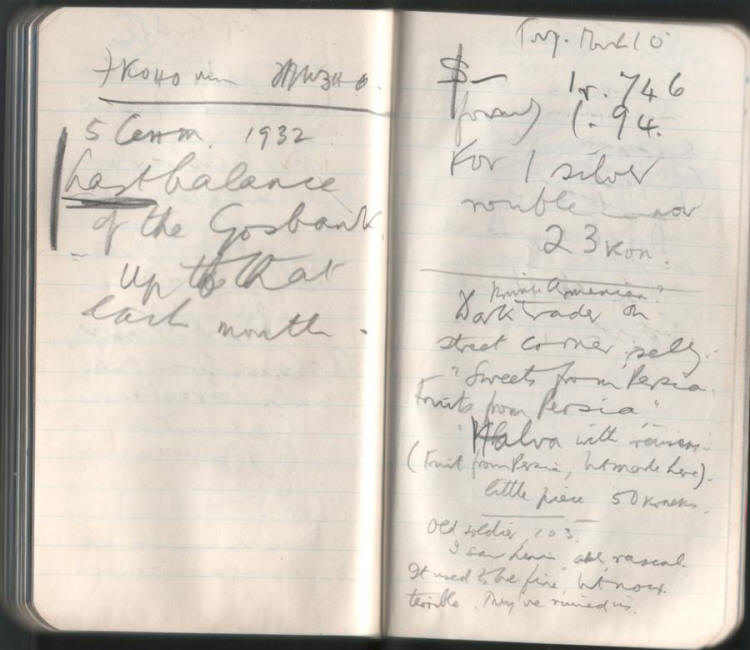 Эконом Жизнь.
5 Сент. 1932
Last balance
of the Gosbank.
up to that
each month.
$ – 1r. 746
forward) 1. 94.
For 1 silver
rouble now
23 коп.
Private Armenian
Dark trader on
street corner, sells:
"Sweets from Persia.
Fruits from Persia"
"Halva with raisins
(Fruit from Persia, but made here).
little piece 50 kopeks.
Old soldier, 103.
I saw Lenin, old rascal.
It used to be fine, but now.
terrible. They've ruined us.